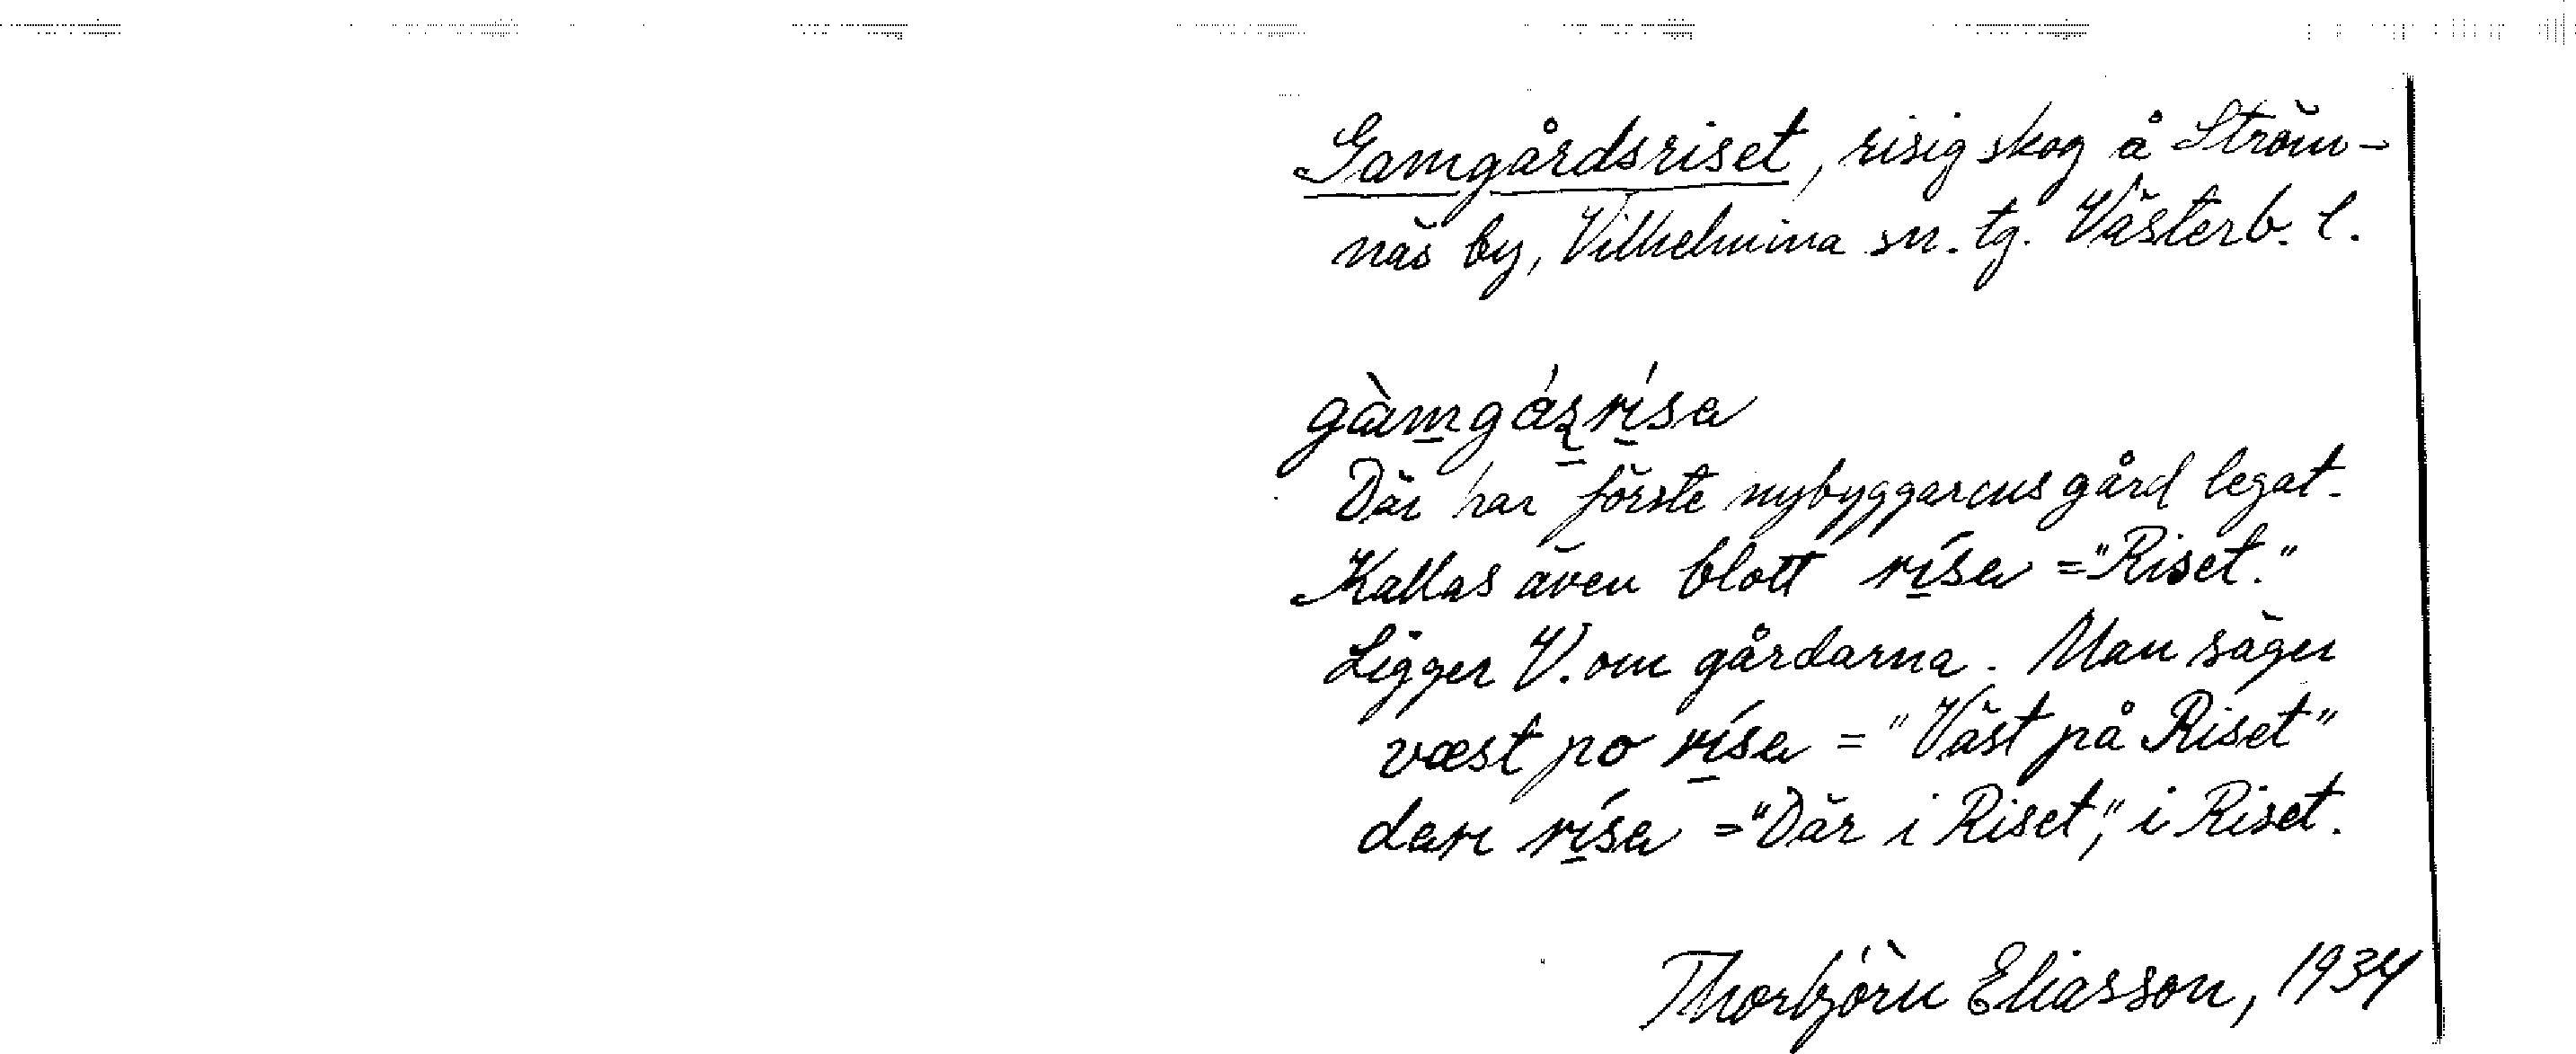 Gamgårdsriset, risig skog å Ström-
näs by, Vilhelmina sn. tg. Västerb. l.
gàmgáʂrísa
Där har förste nybyggarens gård legat.
Kallas även blott rísa = "Riset."
Ligger V. om gårdarna. Man säger
væst po rísa = "Väst på Riset"
darı rísa = "Där i Riset", i Riset.
Thorbjörn Eliasson, 1934